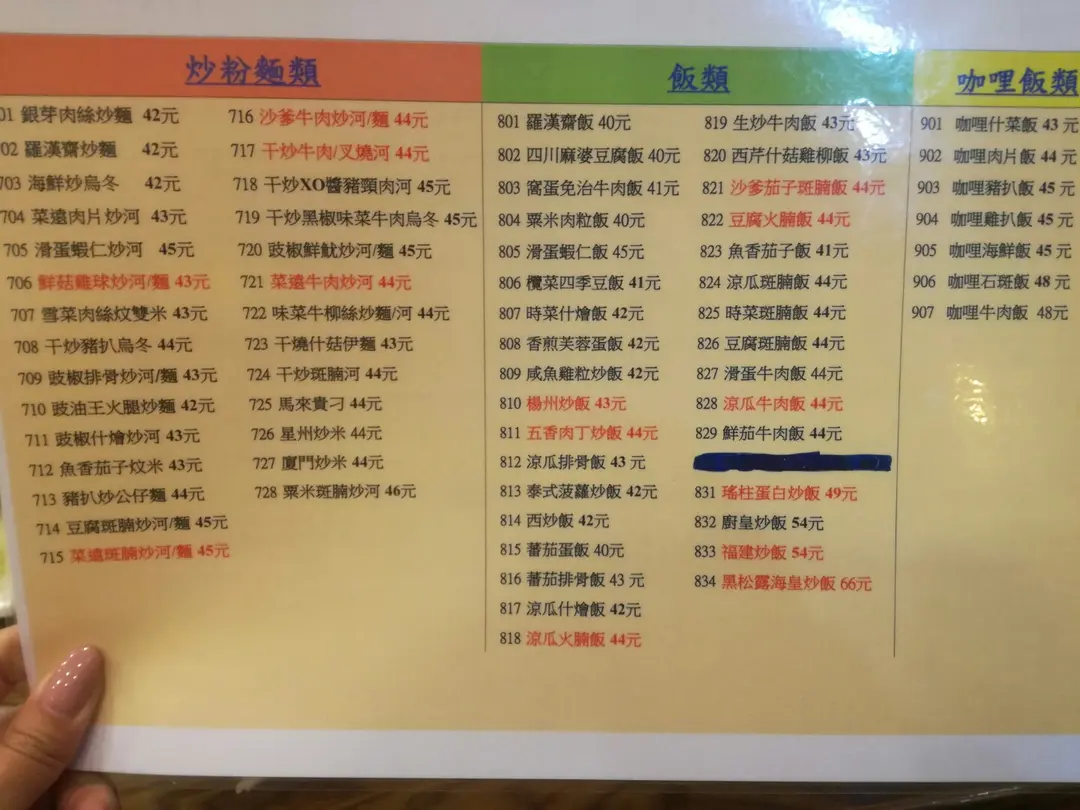 炒粉麵類
01 銀芽肉絲炒麵 42元
02 羅漢齋炒麵 42元
703 海鮮炒烏冬 42元
704 菜遠肉片炒河 43元
705 滑蛋蝦仁炒河 45元
706 鮮菇雞球炒河/麵 43元
707 雪菜肉絲炆雙米 43元
708 干炒豬扒烏冬 44元
709 豉椒排骨炒河/麵 43元
710 豉油王火腿炒麵 42元
711 豉椒什燴炒河 43元
712 魚香茄子炆米 43元
713 豬扒炒公仔麵 44元
714 豆腐斑腩炒河/麵 45元
715 菜遠斑腩炒河/麵 45元
716 沙爹牛肉炒河/麵 44元
717 干炒牛肉/叉燒河 44元
718 干炒XO醬豬頸肉河 45元
719 干炒黑椒味菜牛肉烏冬 45元
720 豉椒鮮魷炒河/麵 45元
721 菜遠牛肉炒河 44元
722 味菜牛柳絲炒麵/河 44元
723 干燒什菇伊麵 43元
724 干炒斑腩河 44元
725 馬來貴刁 44元
726 星州炒米 44元
727 廈門炒米 44元
728 粟米斑腩炒河 46元
飯類
801 羅漢齋飯 40元
802 四川麻婆豆腐飯 40元
803 窩蛋免治牛肉飯 41元
804 粟米肉粒飯 40元
805 滑蛋蝦仁飯 45元
806 欖菜四季豆飯 41元
807 時菜什燴飯 42元
808 香煎芙蓉蛋飯 42元
809 咸魚雞粒炒飯 42元
810 楊州炒飯 43元
811 五香肉丁炒飯 44元
812 涼瓜排骨飯 43 元
813 泰式菠蘿炒飯 42元
814 西炒飯 42元
815 蕃茄蛋飯 40元
816 蕃茄排骨飯 43 元
817 涼瓜什燴飯 42元
818 涼瓜火腩飯 44元
819 生炒牛肉飯 43元
820 西芹什菇雞柳飯 43元
821 沙爹茄子斑腩飯 44元
822 豆腐火腩飯 44元
823 魚香茄子飯 41元
824 涼瓜斑腩飯 44元
825 時菜斑腩飯 44元
826 豆腐斑腩飯 44元
827 滑蛋牛肉飯 44元
828 涼瓜牛肉飯 44元
829 鮮茄牛肉飯 44元
831 瑤柱蛋白炒飯 49元
832 廚皇炒飯 54元
833 福建炒飯 54元
834 黑松露海皇炒飯 66元
咖哩飯類
901 咖哩什菜飯 43 元
902 咖哩肉片飯 44 元
903 咖哩豬扒飯 45 元
904 咖哩雞扒飯 45 元
905 咖哩海鮮飯 45 元
906 咖哩石斑飯 48 元
907 咖哩牛肉飯 48元